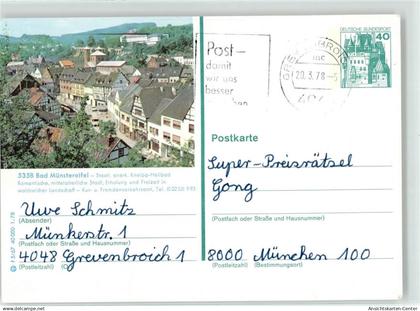 Post –
damit
wir uns
besser
20.3.78
DEUTSCHE BUNDESPOST
40
5358 Bad Münstereifel – Staatl. anerk. Kneipp-Heilbad
Romantische, mittelalterliche Stadt, Erholung und Freizeit in
waldreicher Landschaft – Kur- u. Fremdenverkehrsamt, Tel.
Postkarte
Super-Preisrätsel
Gong
(Postfach oder Straße und Hausnummer)
8000 München 100
(Postleitzahl) (Bestimmungsort)
Uwe Schmitz
(Absender)
Münkerstr. 1
(Postfach oder Straße und Hausnummer)
4048 Grevenbroich 1
(Postleitzahl)
Ansichtskarten-Center